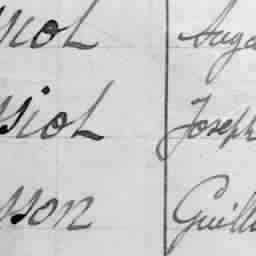 siol Auga
ssiol Joseph
sson Guill